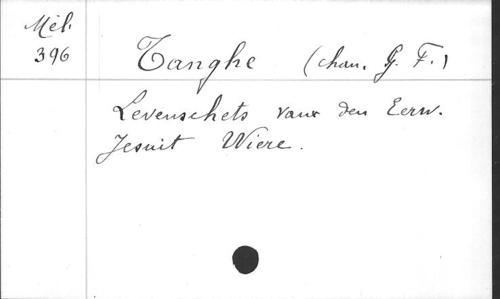 Mél.
396
Tanghe (chan. G. F.)
Levenschets van den Eerw.
Jesuit Wiere.